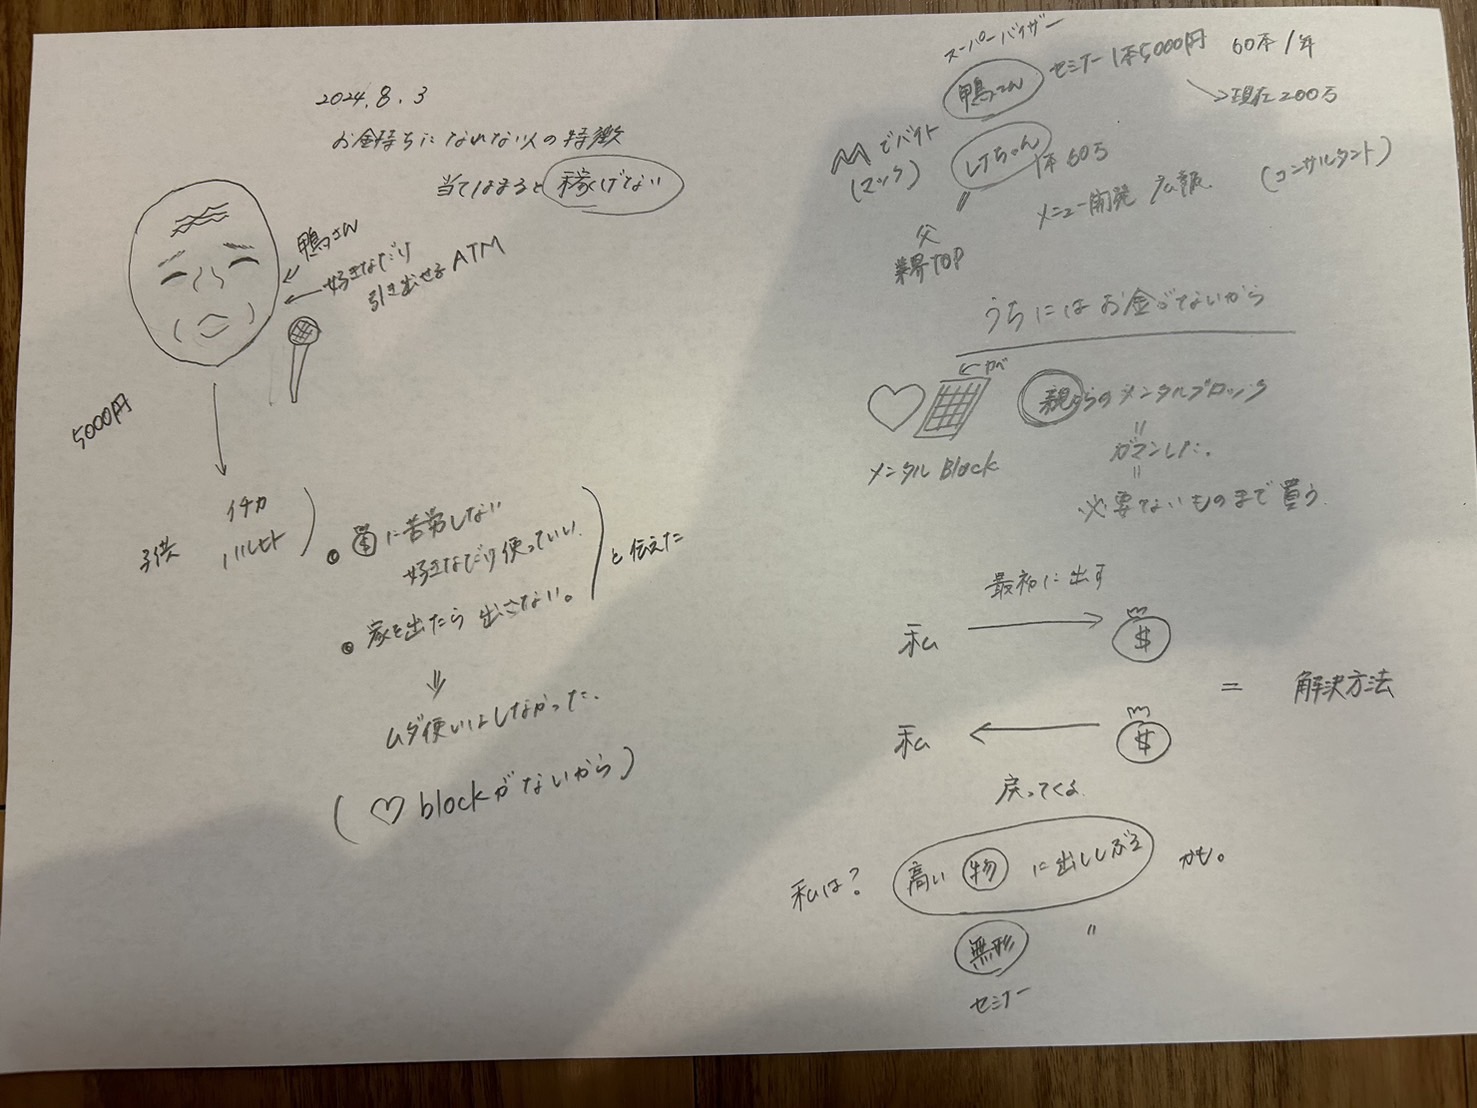 2024.8.3
お金持ちになれない人の特徴
当てはまると稼げない
鴨さん
好きなだけ
引き出せるATM
5000円
子供
イチカ
ハルヒト
に苦労しない
好きなだけ使っていい
家を出たら出さない。
と伝えた
ムダ使いはしなかった。
(♡ blockがないから)
スーパーバイザー
鴨さん セミナー1本5000円 60本/年
→現在200万
Mでバイト
(マック)
しけちゃん 1本60万
メニュー開発 広報 (コンサルタント)
〃
父
業界TOP
うちにはお金がないから
←カベ
メンタルBlock
親からのメンタルブロック
〃
ガマンした。
〃
必要ないものまで買う
最初に出す
私 → $
= 解決方法
私 ← $
戻ってくる
私は? 高い物に出ししぶる かも。
無形 〃
セミナー